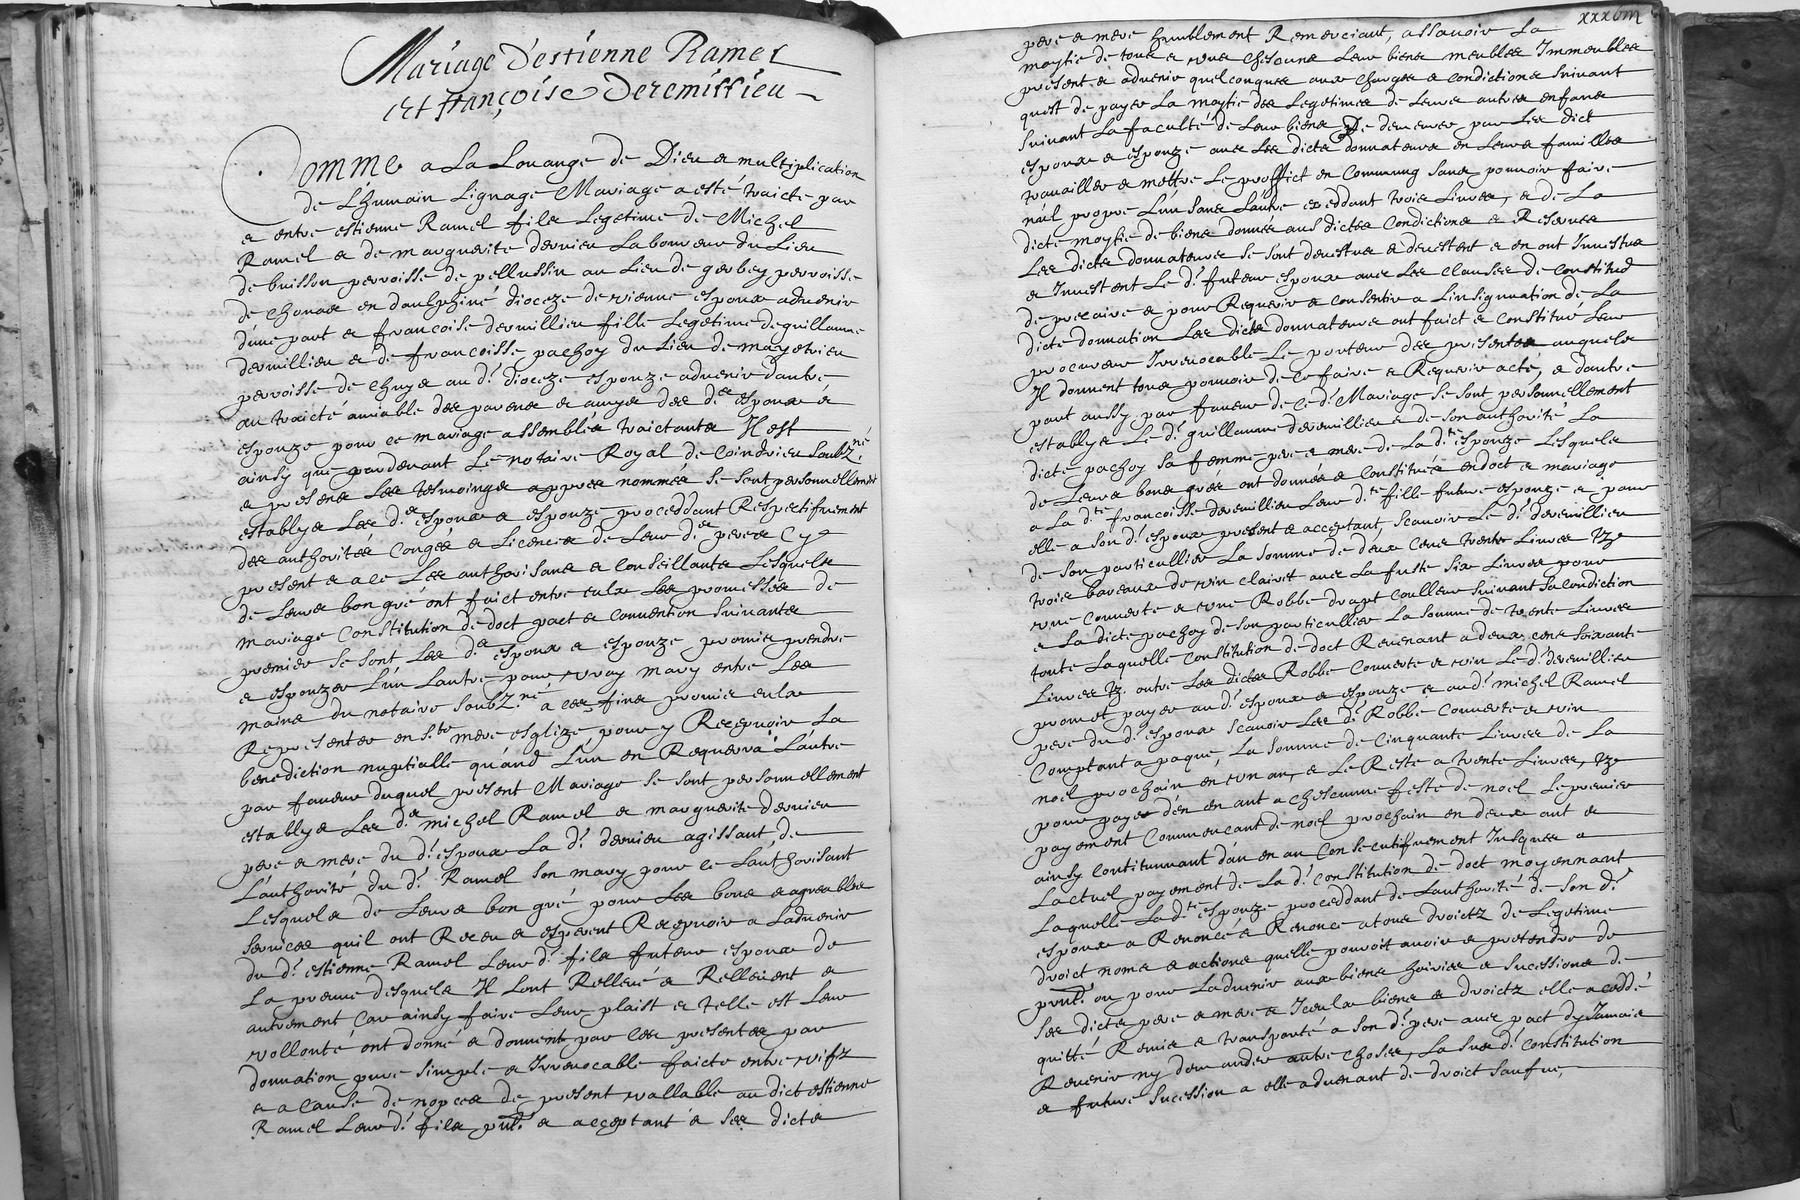 Mariage d'estienne Ramel
et françoise deremillieu
Comme a La Louange de Dieu et multiplication
de L'humain Lignage Mariage a esté traicte par
et entre estienne Ramel fils Legetime de Michel
Ramel et de marguerite dervieu Laboureur du Lieu
de buisson perroisse de pellussin au Lieu de gerbey perroisse
de chonas en daulphiné dioceze de vienne espoux advenir
d'une part et francoise dermillieu fille Legetime de guillaume
dermillieu et de francoisse pachoy du Lieu de
perroisse de chuyes au d.t dioceze espouze advenir dautre
au traicté amiable des parens et amys des d.es espoux et
espouze pour ce mariage assemblés traictants Il est
ainsy que pardevant Le notaire Royal de Coindrieu Soubz.né
et presens Les tesmoings appres nommés se sont personnellement
establys Les d.es espoux et espouze proceddant Respectifvement
des authorités Congés et Licences de Leur d.es peres Cy
present et a ce Les authorisans et Conseillants Lesquels
de Leurs bon gré ont faict entre eulx Les promesses de
mariage Constitution de doct pact et convention Suivantes
premier se sont Les d.es espoux et espouze promis prendre
et espouzer L'un Lautre pour vray mary entre Les
mains du notaire Soubz.né a ces fins promis eulx
Representer en S.te mere esglize pour y Recepvoir La
benediction nuptialle quand L'un en Requerra Lautre
par faveur duquel present Mariage se sont personnellement
establys Les d.es michel Ramel et marguerite dervieu
pere et mere du d.t espoux La d.t dervieu agissant de
L'authorité du d.t Ramel son mary pour ce Lauthorisant
Lesquels de Leurs bon gré pour Les bons et agreables
services quil ont Receu et esperent Recepvoir a Ladvenir
du d.t estienne Ramel Leur d.t fils futeur espoux de
La preuve desquels Il Lont Rellevé et Rellevent et
autrement Car ainsy faire Leur plaist et telle est Leur
vollonté ont donné et donnent par ces presentes par
donnation pure simple et Irrevocable faicte entre vifz
et a cause de nopces de present vallable au dict estienne
Ramel Leur d.t fils pnt. et acceptant et Ses dicts
xxxbiii
pere et mere humblement Remerciant, assavoir La
moytie de tous et vns chescuns Leur biens meubles Immeubles
present et advenir quelconques aux charges et condictions suivant
quest de payer La moytie des Legetimes de Leurs autres enfans
suivant La faculté de Leur biens De demeurer par Les dict
espoux et espouze avec Les dicts donnateurs en Leurs familles
travailler et mettre Le proffict en Commung sans pouvoir faire
nul propre L'un sans Lautre exeddant trois Livres, et de La
dicte moytie de biens donnés aus dictes Condictions et Reserves
Les dicts donnateurs se sont devestus et devestent et en ont Investus
et Investent Le d.t futeur espoux avec Les clauses de constitud
de precaire et pour Requerir et consentir a Linsignuation de La
dicte donnation Les dicts donnateurs ont faict et Constitue Leur
procureur Irrevocable Le porteur des presentes auquels
Il donnent tous pouvoir de Ce faire et Requerir acte, et dautre
part aussy par faveur de Ce d.t Mariage se sont personnellement
establys Le d.t guillaume deremillieu et de son authorité La
dicte pachoy sa femme pere et mere de La d.te espouze Lesquels
de Leurs bons grés ont donnés et Constitués en doct et mariage
a La d.te francoisse deremillieu Leur d.te fille future espouze et pour
elle a son d.t espoux present et acceptant, scavoir Le d.t deremillieu
de son particullier La somme de deux Cens trente Livres tz
trois bareaux de vin clairet avec La fuste six Livres pour
vne couverte et vne Robbe drapt coulleur suivant sa condiction
et La dicte pachoy de son particullier La somme de trente Livres
toute Laquelle constitution de doct Revenant a deux cens soixante
Livres tz. outre Les dictes Robbe Couverte et vin Le d.t deremillieu
promet payer au d.t espoux et espouze et au d.t michel Ramel
pere du d.t espoux scavoir Les d.t Robbe Couverte et vin
Comptant a paque, La somme de Cinquante Livres de La
noel prochain en vn an, et Le Reste a trente Livres, tz
pour payes d'en en ant a chescunne feste de noel Le premier
payement Commencant de noel prochain en deux ant et
ainsy contitunnant d'an en an consecutifvement Jusques a
Lactuel payement de La d.t constitution de doct moyennant
Laquelle La d.te espouze proceddant de Lauthorité de son d.t
espoux a Renoncé et Renonce a tous droictz de Legetime
droict noms et actions quelle pouvoit avoir et pretendre de
pnt. ou pour Ladvenir aux biens hoiries et sucessions de
ses dicts pere et mere et Iceulx biens et droictz elle a ceddé
quitté Remis et transporté a son d.t pere avec pact dy Jamais
Revenir ny demander autre choses, La sus d.t constitution
et future sucession a elle advenant de droict sauf ve,